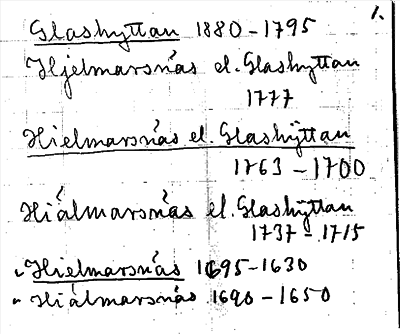 1.
Glashyttan 1880-1795
Hjelmarsnäs el. Glashyttan
1777
Hielmarsnäs el. Glashÿttan
1763-1700
Hiälmarsnäs el. Glashÿttan
1737-1715
Hielmarsnäs 1695-1630
" Hiälmarsnäs 1690-1650